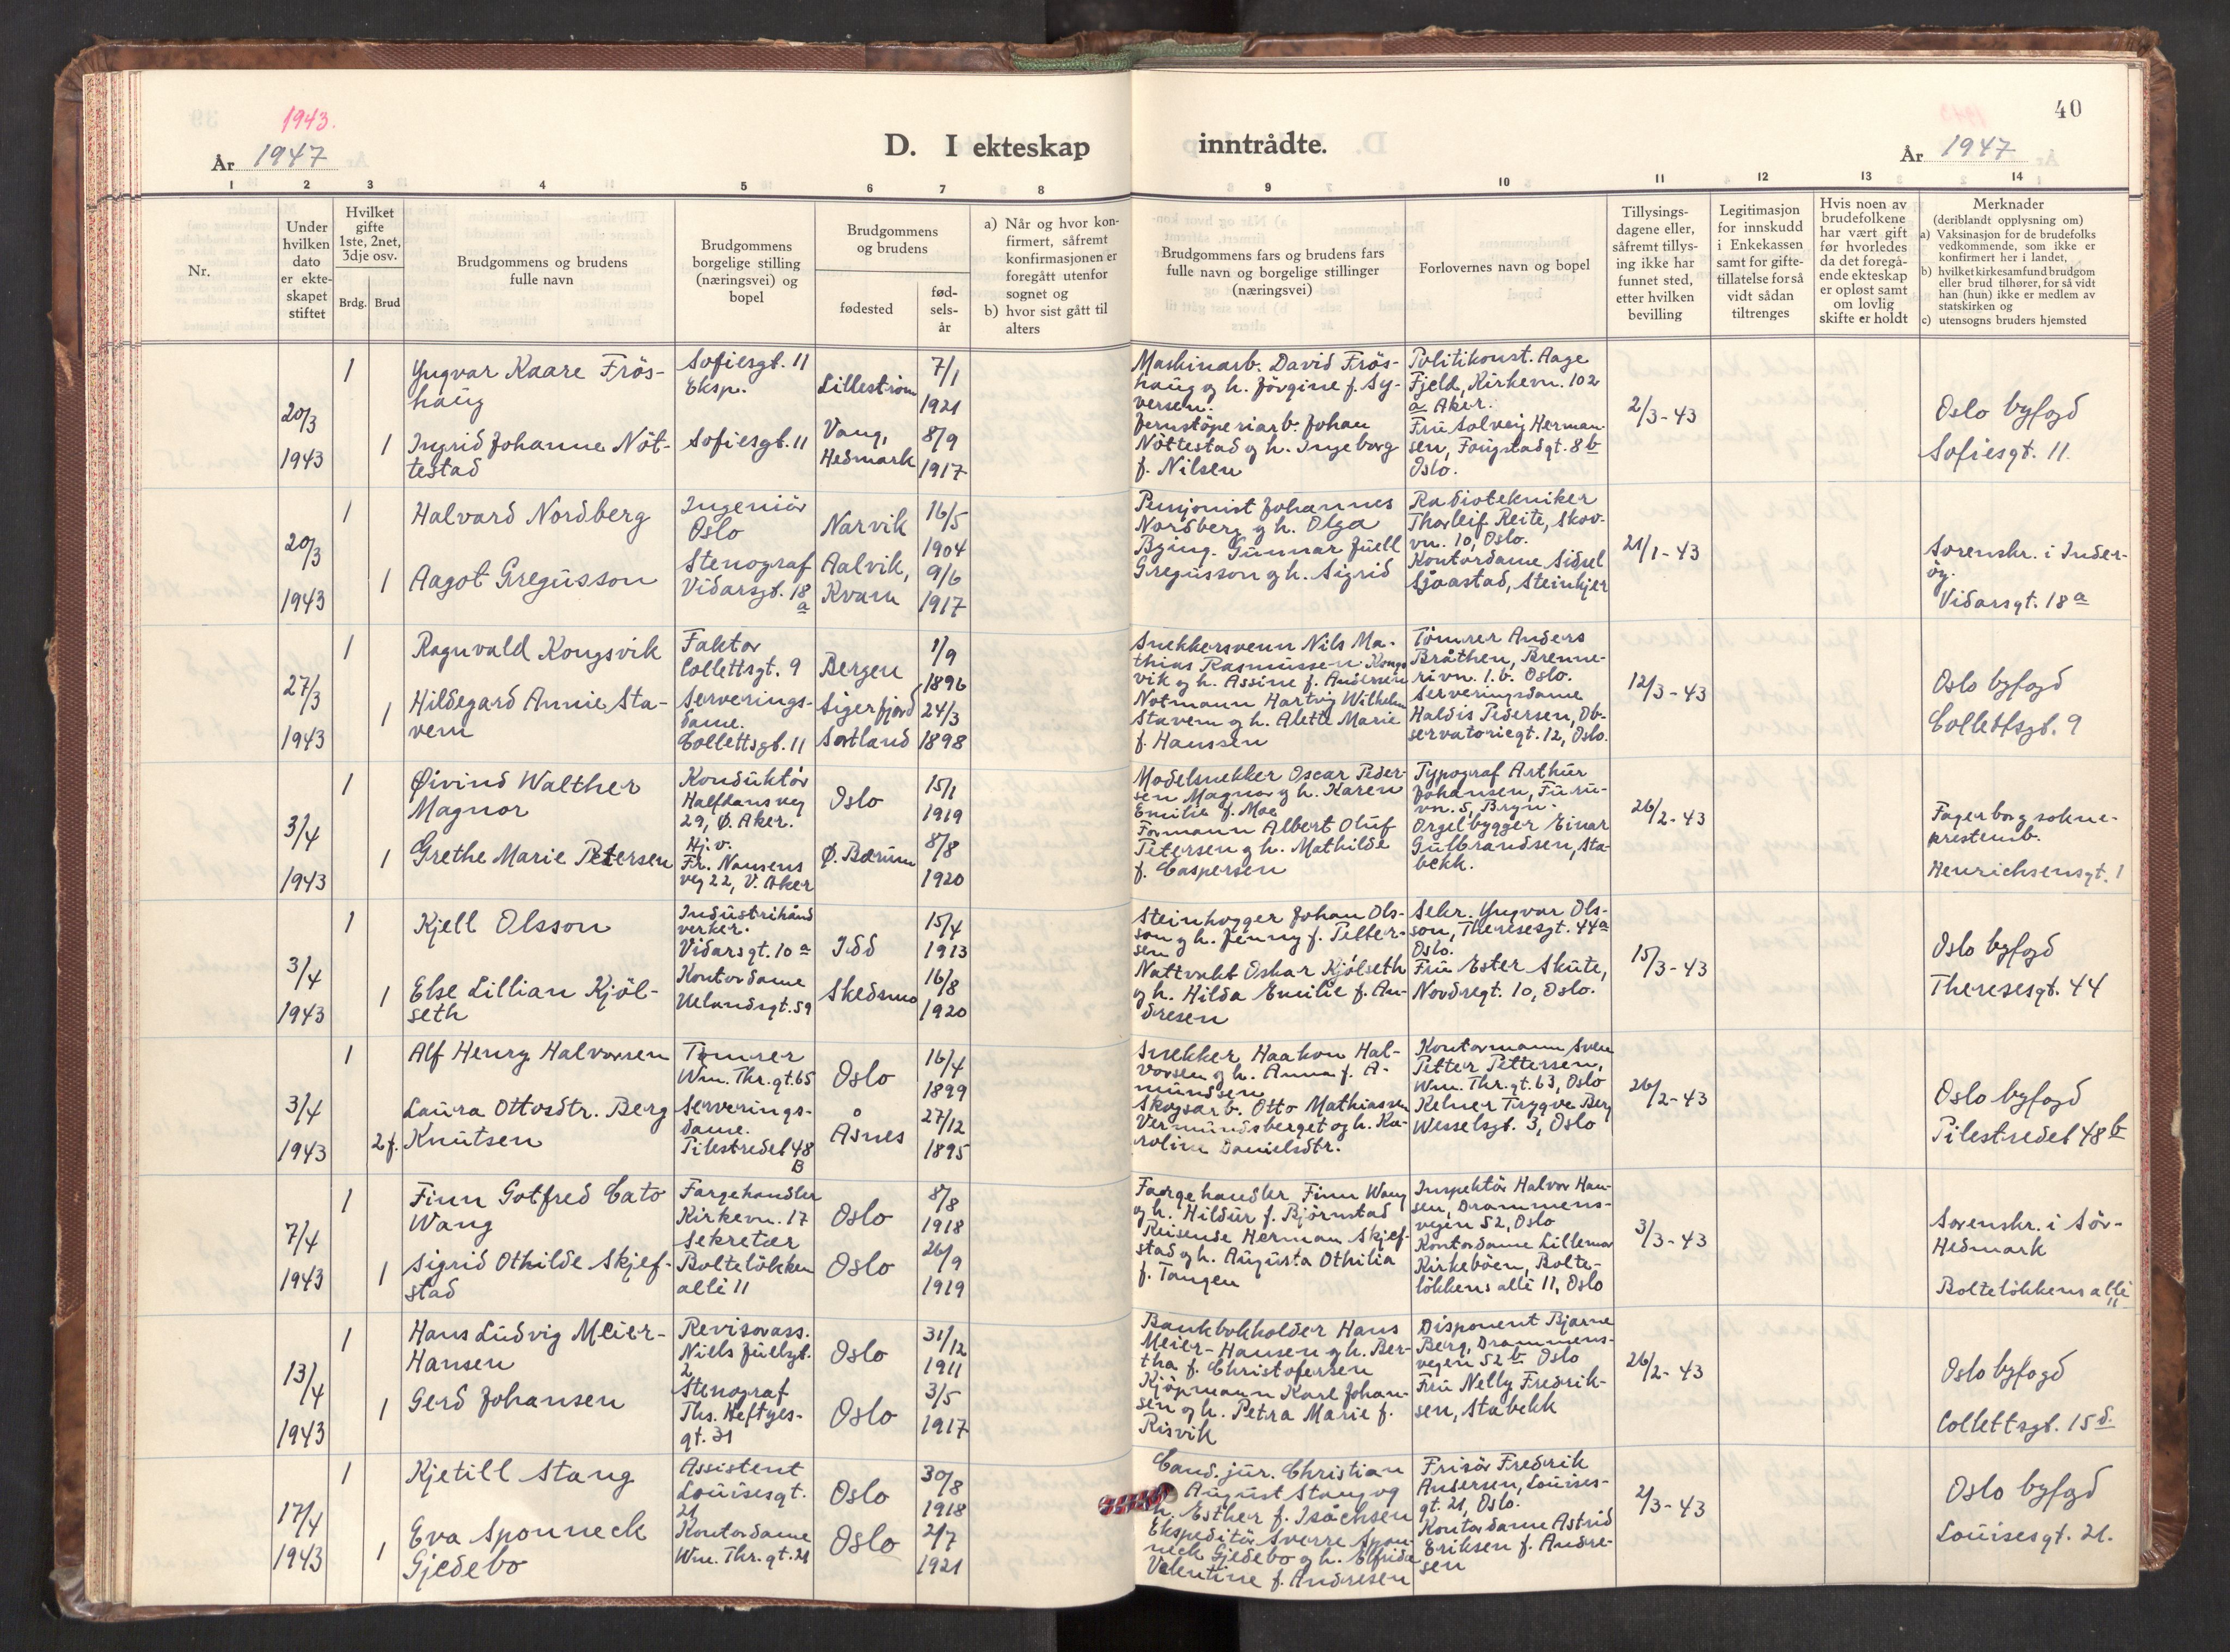 1943.
År 1947
D. I ekteskap inntrådte.
År 1947
40
1 2 3 4 5 6 7 8 9 10 11 12 13 14
Nr.
Under hvilken dato er ekteskapet stiftet
Hvilket gifte 1ste, 2net, 3dje osv.
Brdg. Brud
Brudgommens og brudens fulle navn
Brudgommens borgelige stilling (næringsvei) og bopel
Brudgommens og brudens
fødested
fødselsår
a) Når og hvor konfirmert, såfremt konfirmasjonen er foregått utenfor sognet og
b) hvor sist gått til alters
Brudgommens fars og brudens fars fulle navn og borgelige stillinger (næringsvei)
Forlovernes navn og bopel
Tillysingsdagene eller, såfremt tillysing ikke har funnet sted, etter hvilken bevilling
Legitimasjon for innskudd i Enkekassen samt for giftetillatelse for så vidt sådan tiltrenges
Hvis noen av brudefolkene har vært gift før hvorledes da det foregående ekteskap er opløst samt om lovlig skifte er holdt
Merknader
(deriblandt opplysning om)
a) Vaksinasjon for de brudefolks vedkommende, som ikke er konfirmert her i landet,
b) hvilket kirkesamfund brudgom eller brud tilhører, for så vidt han (hun) ikke er medlem av statskirken og
c) utensogns bruders hjemsted
20/3
1943
1
Yngvar Kaare Frös-
haug
Sofiesgt. 11
Eksp.
Lilleström
7/1
1921
Maskinarb. David Frös-
haug og h. Jörgine f. Sy-
versen.
Politikonst. Aage
Fjeld, Kirkevn. 102
a Aker.
1
Ingrid Johanne Nöt-
testad
Sofiesgt. 11
Vang,
Hedmark
8/9
1917
Jernstöperiarb. Johan
Nöttestad og h. Ingeborg
f. Nilsen
Fru Solveig Herman-
sen, Fougstadgt. 8b
Oslo.
2/3-43
Oslo byfogd
Sofiesgt. 11.
20/3
1943
1
Halvard Nordberg
Ingeniör
Oslo
Narvik
16/5
1904
Pensjonist Johannes
Nordberg og h. Olga
Radiotekniker
Thorleif Reite, Skov-
vn. 10, Oslo.
1
Aagot Gregusson
Stenograf
Vidarsgt. 18
a
Aalvik,
Kvam
9/6
1917
Bying. Gunnar Juell
Gregusson og h. Sigrid
Kontordame Sidsel
Sjaastad, Steinkjer
21/1-43
Sorenskr. i Inder-
öy.
Vidarsgt. 18a
27/3
1943
1
Ragnvald Kongsvik
Faktor
Collettsgt. 9
Bergen
1/9
1896
Snekkersvenn Nils Ma-
thias Rasmussen Kongs
vik og h. Assine f. Andersen
Tömrer Anders
Bråthen, Brenne-
rivn. 1.b. Oslo.
1
Hildegard Annie Sta-
vem
Serverings-
dame.
Collettsgt. 11
Sigerfjord
Sortland
24/3
1898
Notmann Hartvig Wilhelm
Stavem og h. Alette Marie
f. Hanssen
Serveringsdame
Haldis Pedersen, Ob-
servatoriegt. 12, Oslo.
12/3-43
Oslo byfogd
Collettsgt. 9
3/4
1943
1
Øivind Walther
Magnor
Konduktör
Halfdans veg
29, Ø. Aker.
Oslo
15/1
1919
Modelsnekker Oscar Peder-
sen Magnor og h. Karen
Emilie f. Moe
Typograf Arthur
Johansen, Furu-
vn. 5, Bryn.
1
Grethe Marie Petersen
Hj.v.
Fr. Nansens
veg 22, V. Aker
Ø. Bærum
8/8
1920
Formann Albert Oluf
Petersen og h. Mathilde
f. Caspersen
Orgelbygger Einar
Gulbrandsen, Sta-
bekk.
26/2-43
Fagerborg sokne-
prestemb.
Henrichsensgt. 1
3/4
1943
1
Kjell Olsson
Industrihånd
verker.
Vidarsgt. 10a
Idd
15/4
1913
Steinhogger Johan Ols-
son og h. Jenny f. Petter-
sen
Sekr. Yngvar Ols-
son, Theresesgt. 44a
Oslo.
1
Else Lillian Kjöl-
seth
Kontordame
Uelandsgt. 59
Skedsmo
16/8
1920
Nattvakt Oskar Kjölseth
og h. Hilda Emilie f. An-
dresen
Fru Ester Skute,
Nordregt. 10, Oslo.
15/3-43
Oslo byfogd
Theresesgt. 44
3/4
1943
1
Alf Henry Halvorsen
Tömrer
Wm. Thr. gt. 65
Oslo
16/4
1899
Snekker Haakon Hal-
vorsen og h. Anna f. A-
mundsen
Kontormann Sven
Petter Pettersen,
Wm. Thr. gt. 63, Oslo
2.f.
Laura Ottosdtr. Berg
Knutsen
Serverings-
dame.
Pilestredet 48
B
Åsnes
27/12
1895
Skogsarb. Otto Mathiassen
Vermundsberget og h. Ka-
roline Danielsdtr.
Kelner Trygve Berg
Wesselsgt. 3, Oslo
26/2-43
Oslo byfogd
Pilestredet 48b
7/4
1943
1
Finn Gotfred Cato
Wang
Fargehandler
Kirkevn. 17
Oslo
8/8
1918
Fargehandler Finn Wang
og h. Hildur f. Björnstad
Inspektör Halvor Han-
sen, Drammens-
vegen 52, Oslo
1
Sigrid Othilde Skjef-
stad
Sekretær
Boltelökken
allé 11
Oslo
26/9
1919
Reisende Herman Skjef-
stad og h. Augusta Othilia
f. Tangen
Kontordame Lillemor
Kirkeböen, Bolte-
lökkens allé 11, Oslo
3/3-43
Sorenskr. i Sör-
Hedmark
Boltelökkens allé
11
13/4
1943
1
Hans Ludvig Meier-
Hansen
Revisorass.
Niels Juelsgt.
2
Oslo
31/12
1911
Bankbokholder Hans
Meier-Hansen og h. Ber-
tha f. Christofersen
Disponent Bjarne
Berg, Drammens-
vegen 52b Oslo
1
Gerd Johansen
Stenograf
Ths. Heftyes-
gt. 31
Oslo
3/5
1917
Kjöpmann Karl Johan-
sen og h. Petra Marie f.
Risvik
Fru Nelly Fredrik-
sen, Stabekk
26/2-43
Oslo byfogd
Collettsgt. 15d.
17/4
1943
1
Kjetill Stang
Assistent
Louisesgt.
21
Oslo
30/8
1918
Cand. jur. Christian
August Stang og
h. Esther f. Isachsen
Frisör Fredrik
Andersen, Louises-
gt. 21, Oslo.
1
Eva Sponneck
Gjedebo
Kontordame
Wm. Thr. gt. 21
Oslo
2/7
1921
Ekspeditör Sverre Spon-
neck Gjedebo og h. Elfrida
Valentine f. Andresen
Kontordame Astrid
Eriksen f. Andre-
sen
2/3-43
Oslo byfogd
Louisesgt. 21.